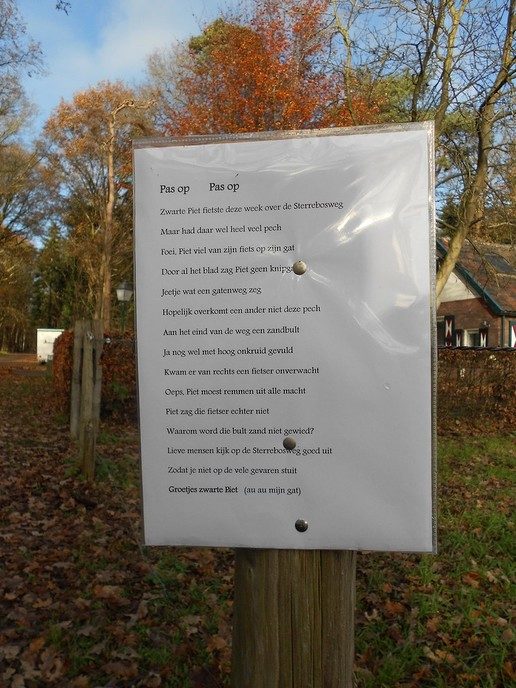 Pas op Pas op
Zwarte Piet fietste deze week over de Sterrebosweg
Maar had daar wel heel veel pech
Foei, Piet viel van zijn fiets op zijn gat
Door al het blad zag Piet geen
Jeetje wat een gatenweg zeg
Hopelijk overkomt een ander niet deze pech
Aan het eind van de weg een zandbult
Ja nog wel met hoog onkruid gevuld
Kwam er van rechts een fietser onverwacht
Oeps, Piet moest remmen uit alle macht
Piet zag die fietser echter niet
Waarom word die bult zand niet gewied?
Lieve mensen kijk op de Sterrebosweg goed uit
Zodat je niet op de vele gevaren stuit
Groetjes zwarte Piet (au au mijn gat)